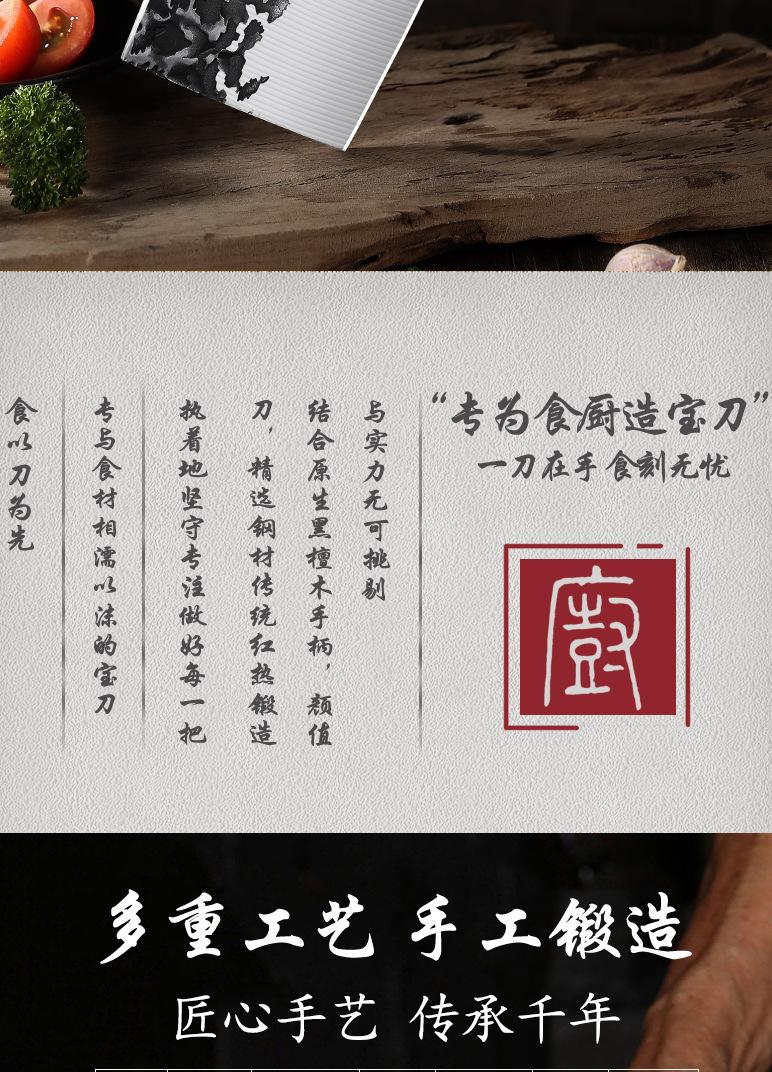 食以刀为先
专与食材相濡以沫的宝刀
执着地坚守专注做好每一把
刀，精选钢材传统红热锻造
结合原生黑檀木手柄，颜值
与实力无可挑剔
“专为食厨造宝刀”
一刀在手 食刻无忧
廚
多重工艺 手工锻造
匠心手艺 传承千年